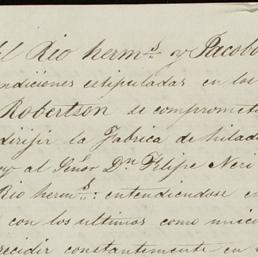 el Rio herm.s y Jacobo
ndiciones estipuladas en los
Robertson se compromete
dirijir la Fabrica de hilad
y al Señor Dn Felipe Neri
Rio herm.s: entendiendose en
con los ultimos como unico
recidir constantemente en